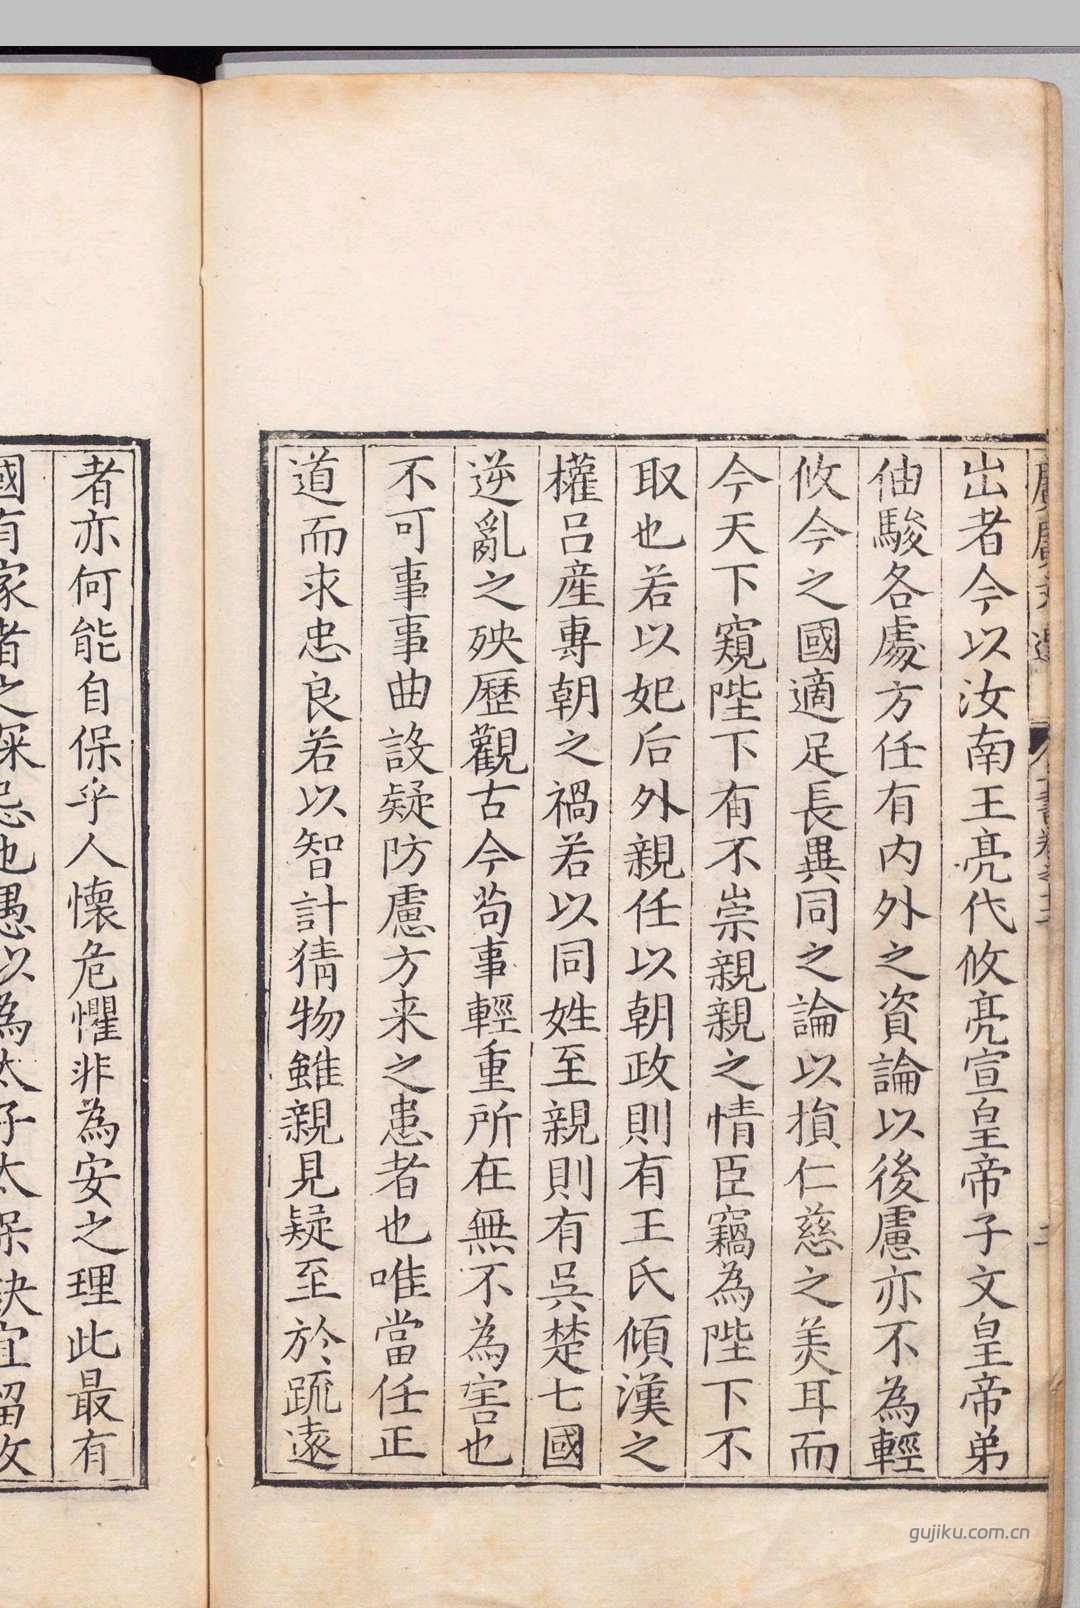 出者今以汝南王亮代攸亮宣皇帝子文皇帝弟
伷駿各處方任有内外之資論以後慮亦不為輕
攸今之國適足長異同之論以損仁慈之美耳而
今天下窺陛下有不崇親親之情臣竊為陛下不
取也若以妃后外親任以朝政則有王氏傾漢之
權呂産專朝之禍若以同姓至親則有吳楚七國
逆亂之殃歷觀古今茍事輕重所在無不為害也
不可事事曲設疑防慮方来之患者也唯當任正
道而求忠良若以智計猜物雖親見疑至於疏遠
者亦何能自保乎人懷危懼非為安之理此最有
國有家者之深忌也愚以為太子太保缺宜留攸
gujiku.com.cn